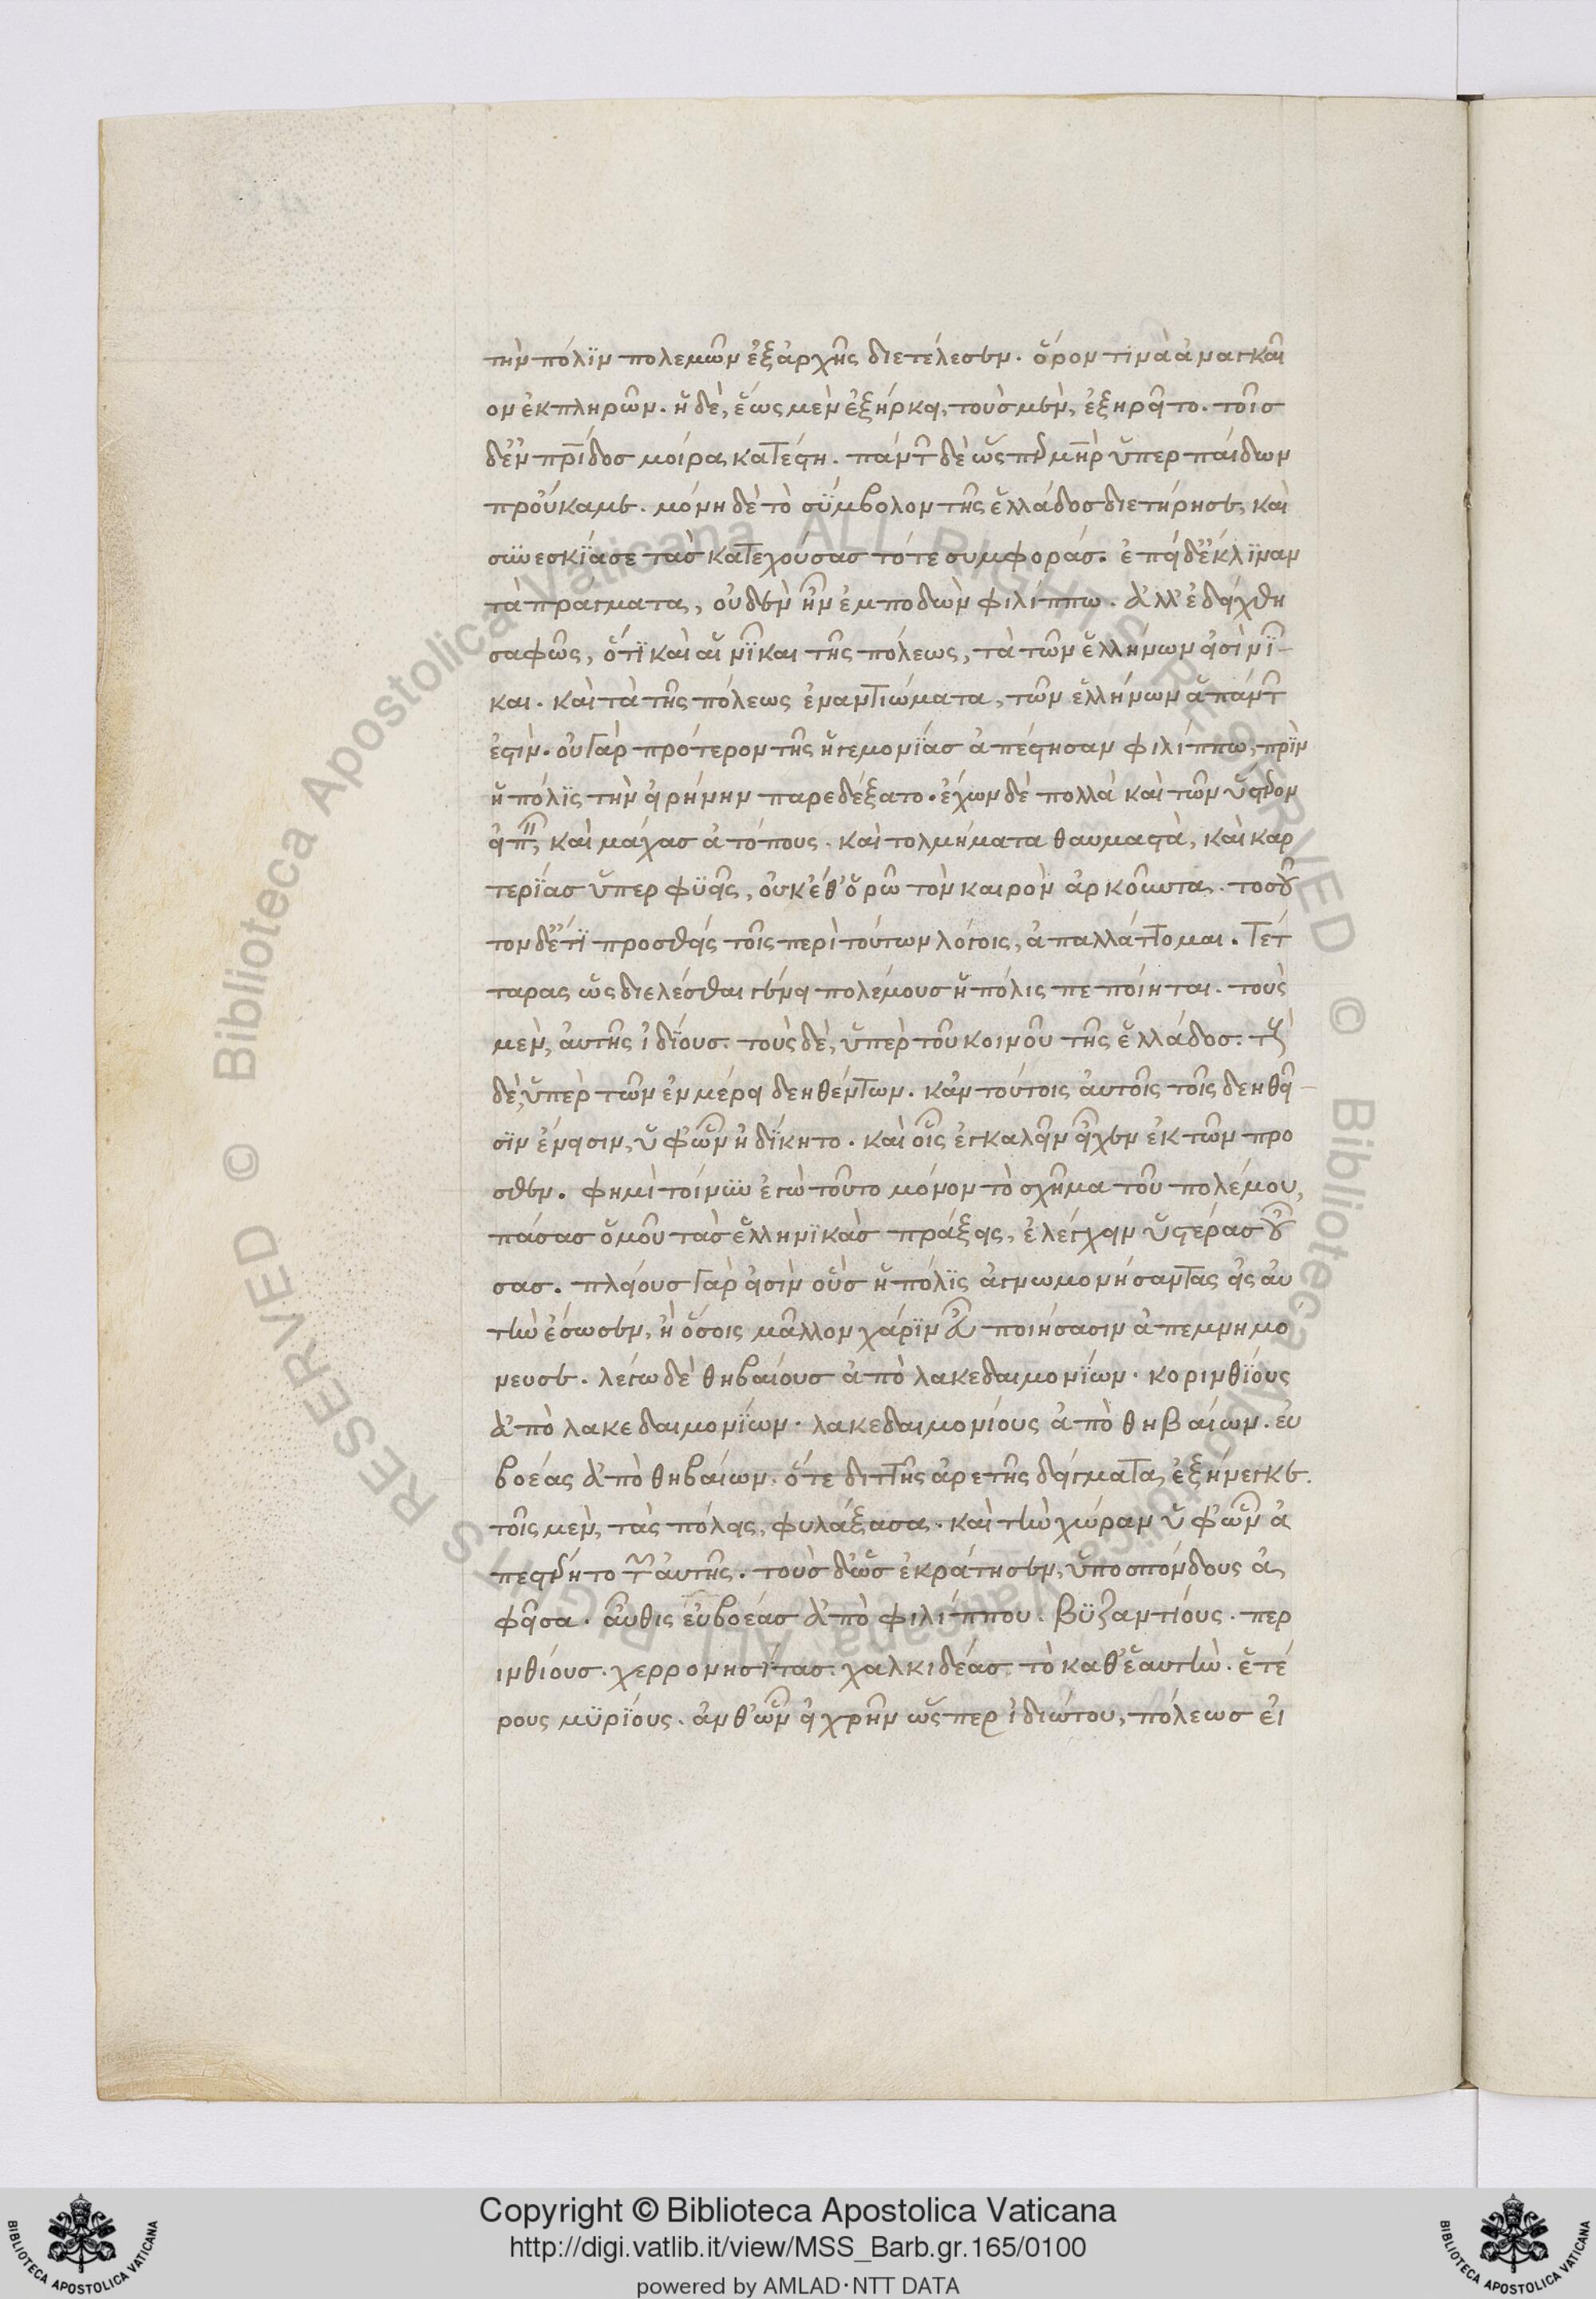 τὴν πόλϊν πολεμῶν ἐξἀρχῆς διετέλεσεν. ὅρον τινὰ ἀναγκαῖ
ον ἐκπληρῶν. ἡ δὲ, ἕως μὲν ἐξήρκει, τοὺς μὲν, ἐξηρεῖτο. τοῖς
δἐν πρῖδος μοίρᾳ κατέστη. πάντ δὲ ὡς περ μηρ ὑπερ παίδων
προὔκαμε. μόνη δὲ τὸ σύμβολον τῆς ἑλλάδος διετήρησε, καὶ
συνεσκίασε τὰς κατεχούσας τότε συμφοράς. ἐπεὶ δἔκλϊναν
τὰ πραγματα, οὐδὲν ἦν ἐμποδὼν φιλίππω. ἀλλ' ἐδείχθη
σαφῶς, ὅτϊ καὶ αἱ νῖκαι τῆς πόλεως, τὰ τῶν ἑλλήνων εἰσὶ νῖ
και. καὶ τὰ τῆς πόλεως ἐναντιώματα, τῶν ἑλλήνων ἁπάντ
ἐστὶν. οὐ γὰρ πρότερον τῆς ἡγεμονίας ἀπέστησαν φιλίππω, πρὶν
ἡ πόλϊς τὴν εἰρήνην παρεδέξατο. ἔχων δὲ πολλὰ καὶ τῶν ὕστερον
εἰπ, καὶ μάχας ἀτόπους. καὶ τολμήματα θαυμαστὰ, καὶ καρ
τερίας ὑπερφυεῖς, οὐκ ἔθ' ὁρῶ τὸν καιρὸν ἀρκοῦντα. τοσοῦ
τον δἔτϊ προσθεὶς τοῖς περὶ τούτων λόγοις, ἀπαλλάττομαι. τέτ
ταρας ὡς διελέσθαι γένει πολέμους ἡ πόλις πεποίηται. τοὺς
μεν, αὐτῆς ἰδίους. τοὺς δὲ, ὑπὲρ τοῦ κοινοῦ τῆς ἑλλάδος. τοὺς
δὲ, ὑπὲρ τῶν ἐν μέρει δεηθέντων. κἀν τούτοις αὐτοῖς τοῖς δεηθεῖ
σϊν ἔνεισιν, ὑφ' ὧν ἠδίκητο. καὶ οἷς ἐγκαλεῖν εἶχεν ἐκ τῶν προ
σθεν. φημὶ τοίνυν ἐγὼ τοῦτο μόνον τὸ σχῆμα τοῦ πολέμου,
πάσας ὁμοῦ τὰς ἑλληνϊκὰς πράξεις, ἐλέγχειν ὑστέρας οὔ
σας. πλείους γὰρ εἰσὶν οὓς ἡ πόλϊς ἀγνωμονήσαντας εἰς αὐ
τὴν ἔσωσεν, ἢ ὅσοις μᾶλλον χάρϊν εὖ ποιήσασιν ἀπεμνημο
νευσε. λέγω δὲ θηβαίους ἀπὸ λακεδαιμονίων. κορινθίους
ἀπὸ λακεδαιμονίων. λακεδαιμονίους ἀπὸ θηβαίων. εὐ
βοέας ἀπὸ θηβαίων. ὅτε διττῆς ἀρετῆς δείγματα ἐξήνεγκε.
τοῖς μεν, τὰς πόλεις, φυλάξασα. καὶ τὴν χώραν ὑφ' ὧν ἀ
πεστέρητο τ αὐτῆς. τοὺς δ' ὡς ἐκράτησεν, ὑποσπόνδους ἀ
φεῖσα. αὖθις εὐβοέας ἀπὸ φιλίππου. βυζαντίους. περ
ινθίους. χερρονησίτας. χαλκιδέας. τὸ καθ' ἑαυτὴν. ἑτέ
ρους μυρίους. ἀνθ' ὧν εἰ χρῆν ὥσπερ ἰδιώτου, πόλεως εἰ
Copyright © Biblioteca Apostolica Vaticana
http://digi.vatlib.it/view/MSS_Barb.gr.165/0100
powered by AMLAD·NTT DATA